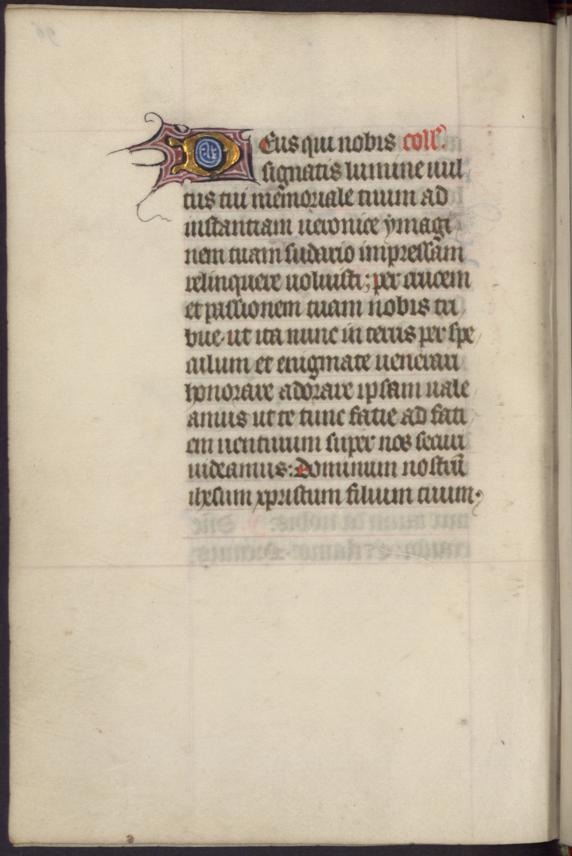 Deus qui nobis coll'.
signatis lumine uul
tus tui memoriale tuum ad
instantiam ueronice ymagi
nem tuam sudario impressam
relinquere uoluisti; per crucem
et passionem tuam nobis tri
bue. ut ita nunc in terris per spe
culum et enigmate uenerari
honorare adorare ipsam uale
amus ut te tunc facie ad faci
em uenturum super nos securi
uideamus: Dominum nostrū
ihesum xpristum filium tuum.